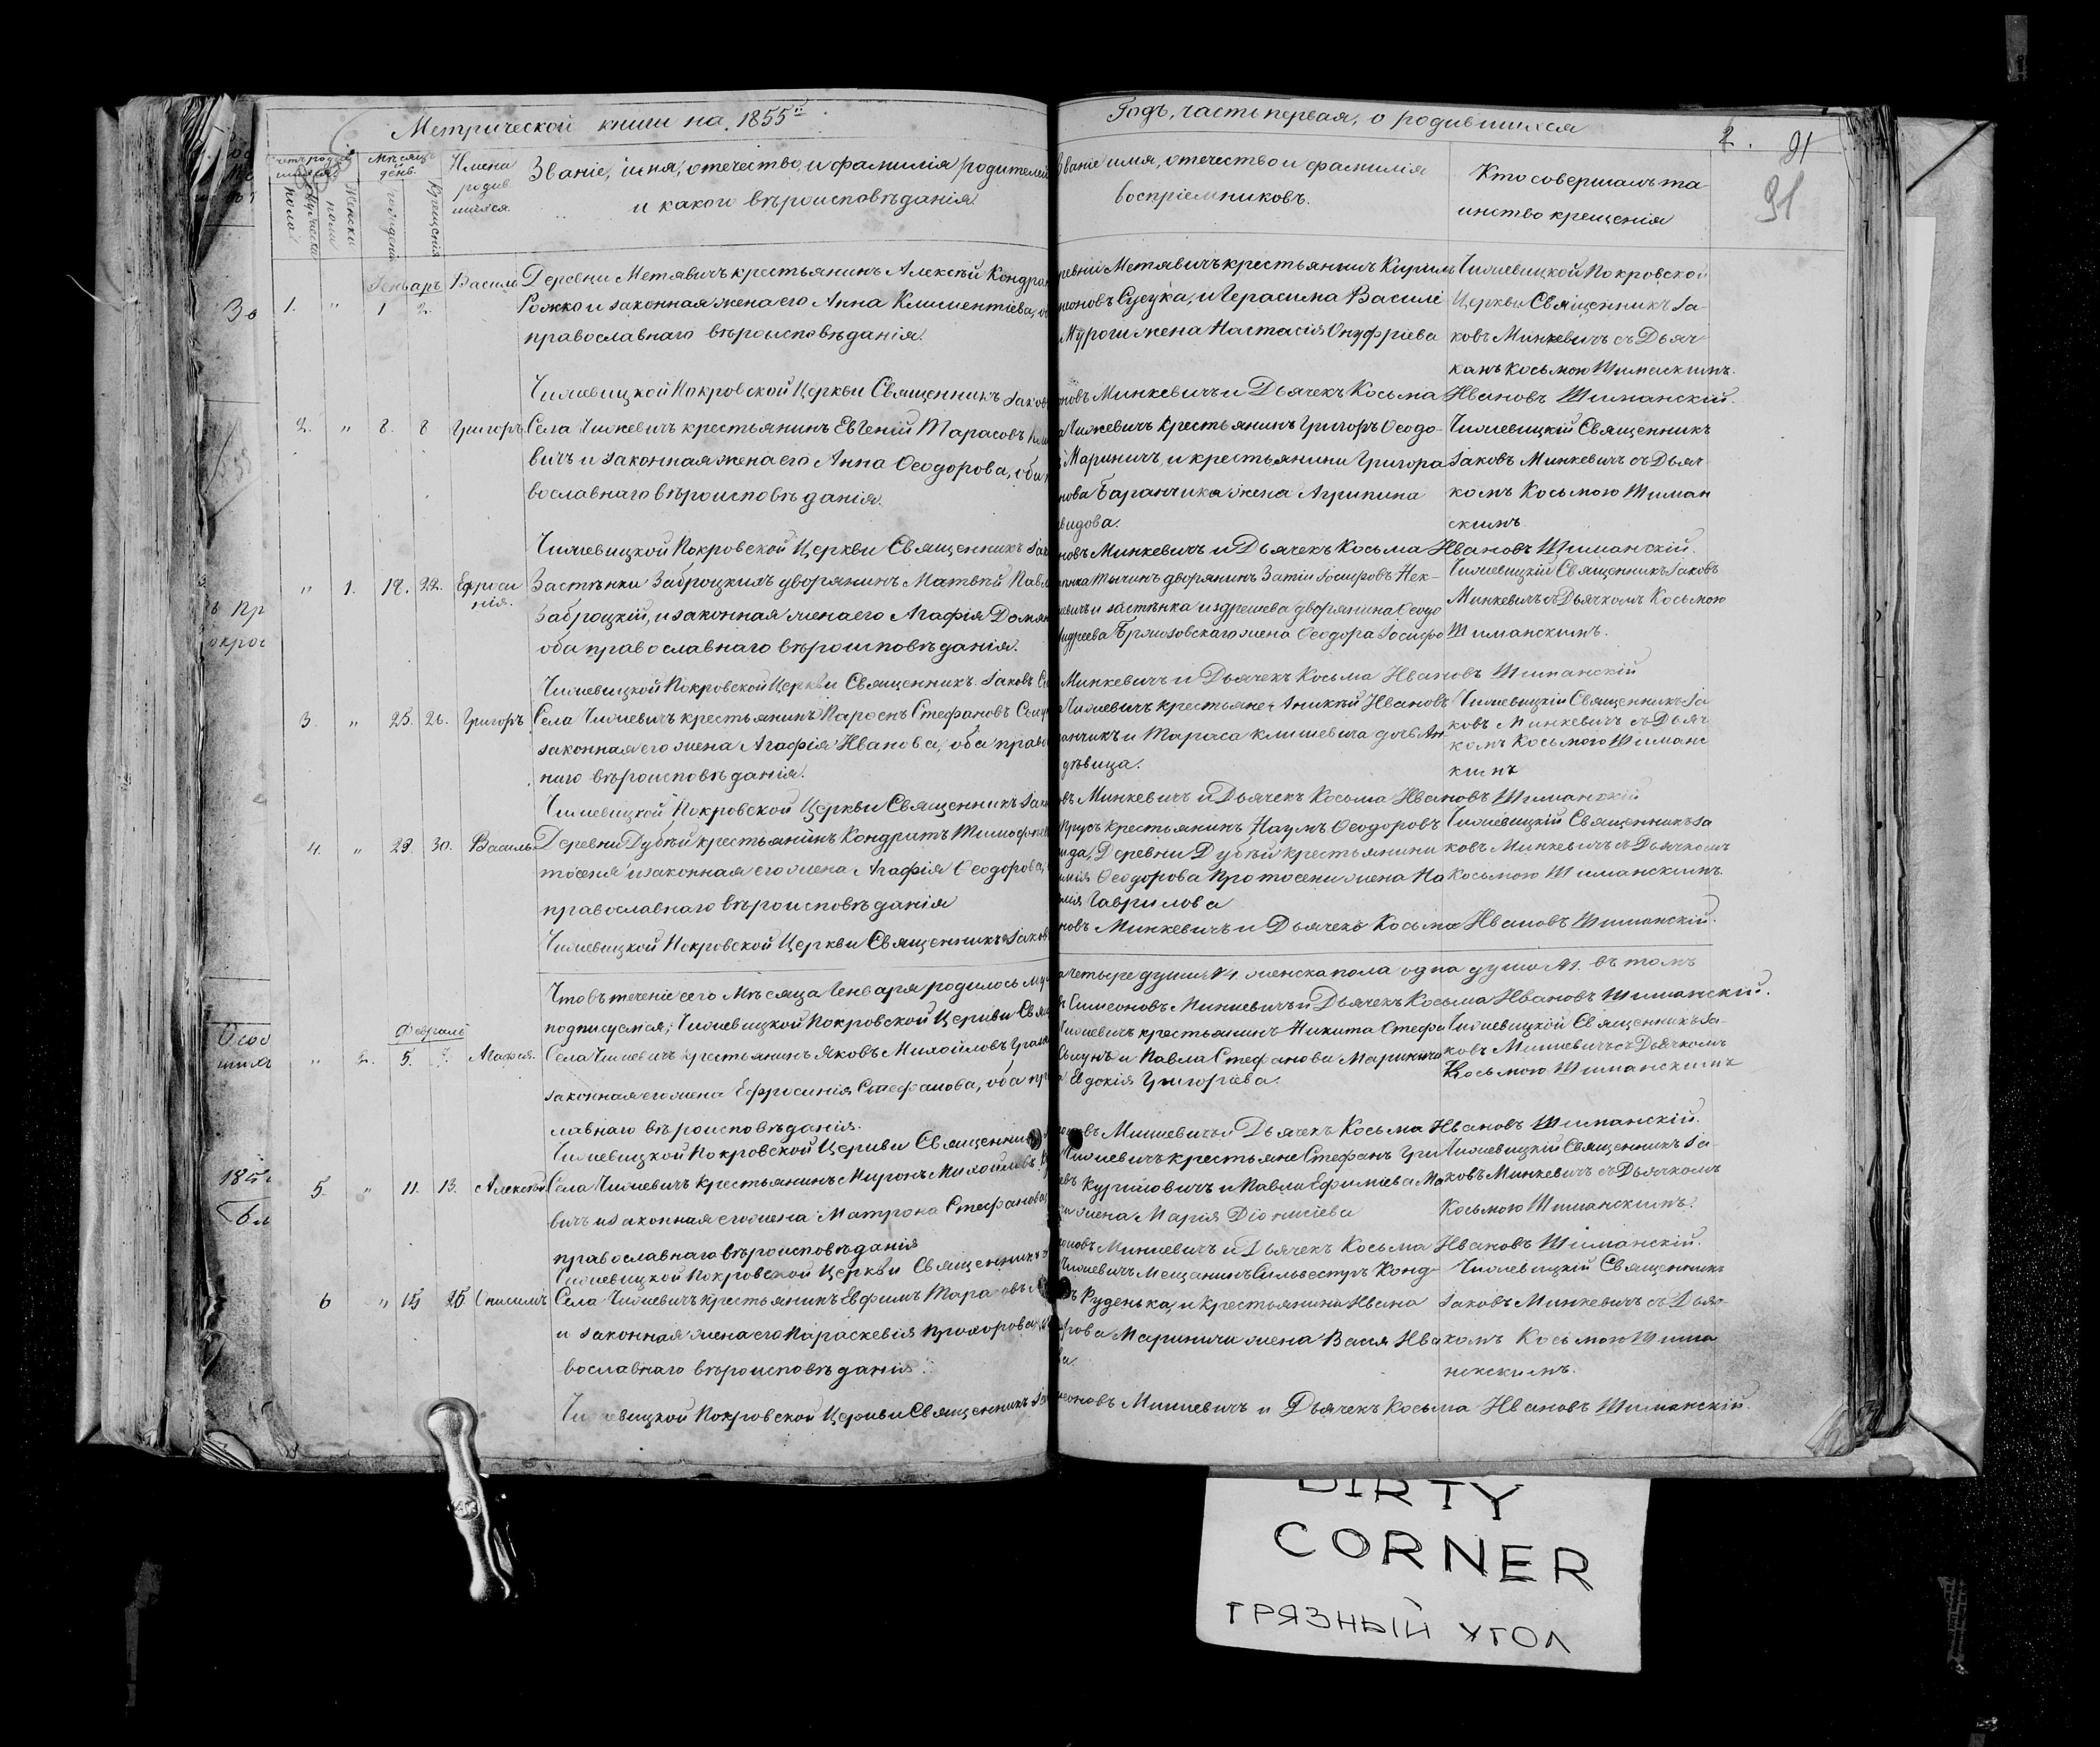 Метрической книги на 1855й
Годъ, часть первая, о родившихся
2. 91
91
Мѣсяцъ
день.
Имена
родив
шихся
Званіе, имя, отечество, и фамилія родителей
и какого вѣроисповѣданія
Званіе имя, отечество и фамилія
воспріемниковъ.
Кто совершалъ та-
инство крещенія
мужеска
пола
Женска
пола
рожденія
крещенія
Генварь
1. " 1 2. Василій
Деревни Метявичъ крестьянинъ Алексѣй Кондра
Рожко и законная жена его Анна Климентіева, о
православнаго вѣроисповѣданія.
ревни Метявичъ крестьянинъ Кирил
меоновъ Сусѣка, и Герасима Василі
Мурогижена Настасія Онуфріева
Чижевицкой Покровской
Церкви Священникъ Іа-
ковъ Минкевичъ съ Дьяч
комъ Косьмою Шиманскимъ.
Чижевицкой Покровской Церкви Священникъ Іаков
оновъ Минкевичъ и Дьячекъ Косьма Ивановъ Шиманскій.
2. " 8. 8 Григоръ
Села Чижевичъ крестьянинъ Евгеній Тарасовъ
вичъ и законная жена его Анна Ѳеодорова, оба
вославнаго вѣроисповѣданія.
Чижевичъ крестьянинъ Григоръ Ѳеодо-
Мариничъ, и крестьянина Григора
нова Баранчика жена Агрипина
видова.
Чижевицкій Священникъ
Іаковъ Минкевичъ съ Дьяч
комъ Косьмою Шиман
скимъ
Чижевицкой Покровской Церкви Священникъ Іак
новъ Минкевичъ и Дьячекъ Косьма Ивановъ Шиманскій.
" 1. 18. 22. Ефроси
нія.
Застѣнка Заброцкихъ дворянинъ Матвѣй Павл
Заброцкій, и законная жена его Агафія Домян
оба православнаго вѣроисповѣданія.
дворянинъ Іосифовъ Нек-
евичъ и застѣнка дворянина Ѳеодо
Андреева жена Ѳеодора Іосифо
Чижевицкій Священникъ Іаковъ
Минкевичъ съ Дьячкомъ Косьмою
Шиманскимъ.
Чижевицкой Покровской Церкви Священникъ Іаковъ Си
Минкевичъ и Дьячекъ Косьма Ивановъ Шиманскій
3. " 25. 26. Григоръ
Села Чижевичъ крестьянинъ Парѳенъ Стефановъ
законная его жена Агафія Иванова, оба право
наго вѣроисповѣданія.
Чижевичъ крестьяне Аникѣй Ивановъ
анчикъ и Тараса Климевича дочь Ан
дѣвица.
Чижевицкій Священникъ Іа
ковъ Минкевичъ съ Дьяч
комъ Косьмою Шиманс
кимъ
Чижевицкой Покровской Церкви Священникъ Іак
овъ Минкевичъ и Дьячекъ Косьма Ивановъ Шиманскій
4. " 29. 30. Василь
Деревни Дубѣй крестьянинъ Кондратъ Тимофѣев
тосеня и законная его жена Агафія Ѳеодорова,
православнаго вѣроисповѣданія
Прусъ крестьянинъ Наумъ Ѳеодоровъ
Деревни Дубѣй крестьянина
Ѳеодорова Протосени жена На
Гаврилова
Чижевицкій Священникъ Іа
ковъ Минкевичъ съ Дьячкомъ
Косьмою Шиманскимъ.
Чижевицкой Покровской Церкви Священникъ Іаков
новъ Минкевичъ и Дьячекъ Косьма Ивановъ Шиманскій.
Что въ теченіе сего Мѣсяца Генваря родилось му
четыре души женска пола одна душа въ томъ
подписуемся; Чижевицкой Покровской Церкви Свящ
Симеоновъ Минкевичъ и Дьячекъ Косьма Ивановъ Шиманскій.
Февраль
" 2. 5. Агафія.
Села Чижевичъ крестьянинъ Яковъ Михайловъ
законная его жена Ефросинія Стефанова, оба пр
лавнаго вѣроисповѣданія.
Чижевичъ крестьянинъ Никита Стефа
и Павла Стефанова Маринича
Евдокія Григоріева.
Чижевицкой Священникъ Іа-
ковъ Минкевичъ съ Дьячкомъ
Косьмою Шиманскимъ
Чижевицкой Покровской Церкви Священник
новъ Минкевичъ и Дьячекъ Косьма Ивановъ Шиманскій.
5. " 11. 13. Алексѣй
Села Чижевичъ крестьянинъ Миронъ Михайловъ
вичъ и законная его жена Матрона Стефанова,
православнаго вѣроисповѣданія
Чижевичъ крестьяне Стефанъ Гри
евъ и Павла Ефиміева Ма
жена Марія Діонисіева
Чижевицкій Священникъ Іа-
ковъ Минкевичъ съ Дьячкомъ
Косьмою Шиманскимъ.
Чижевицкой Покровской Церкви Священникъ
оновъ Минкевичъ и Дьячекъ Косьма Ивановъ Шиманскій.
6 " 15 Онисимъ
Села Чижевичъ крестьянинъ Евфимъ Тарасовъ
и законная жена его Параскевія Прохорова,
вославнаго вѣроисповѣданія.
Чижевичъ Мещанинъ Сильвестръ Конд-
Руденька, и крестьянина Ивана
Маринича жена Ива
ва.
Чижевицкій Священникъ
Іаковъ Минкевичъ съ Дья-
комъ Косьмою Шима
нскимъ.
Чижевицкой Покровской Церкви Священникъ Іа
меоновъ Минкевичъ и Дьячекъ Косьма Ивановъ Шиманскій.
DIRTY
CORNER
ГРЯЗНЫЙ УГОЛ